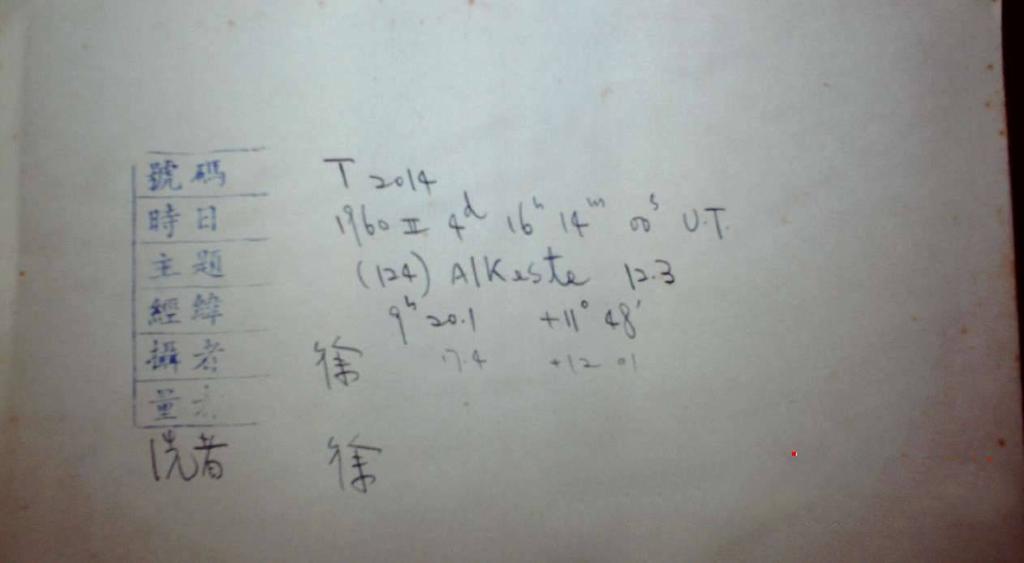 號碼 T 2014
時日 1960 II 4d 16h 14m 00s U.T.
主題 (124) Alkeste 12.3
經緯 9h 20.1 +11° 48'
攝者 徐 17.4 +12 01
量
洗者 徐